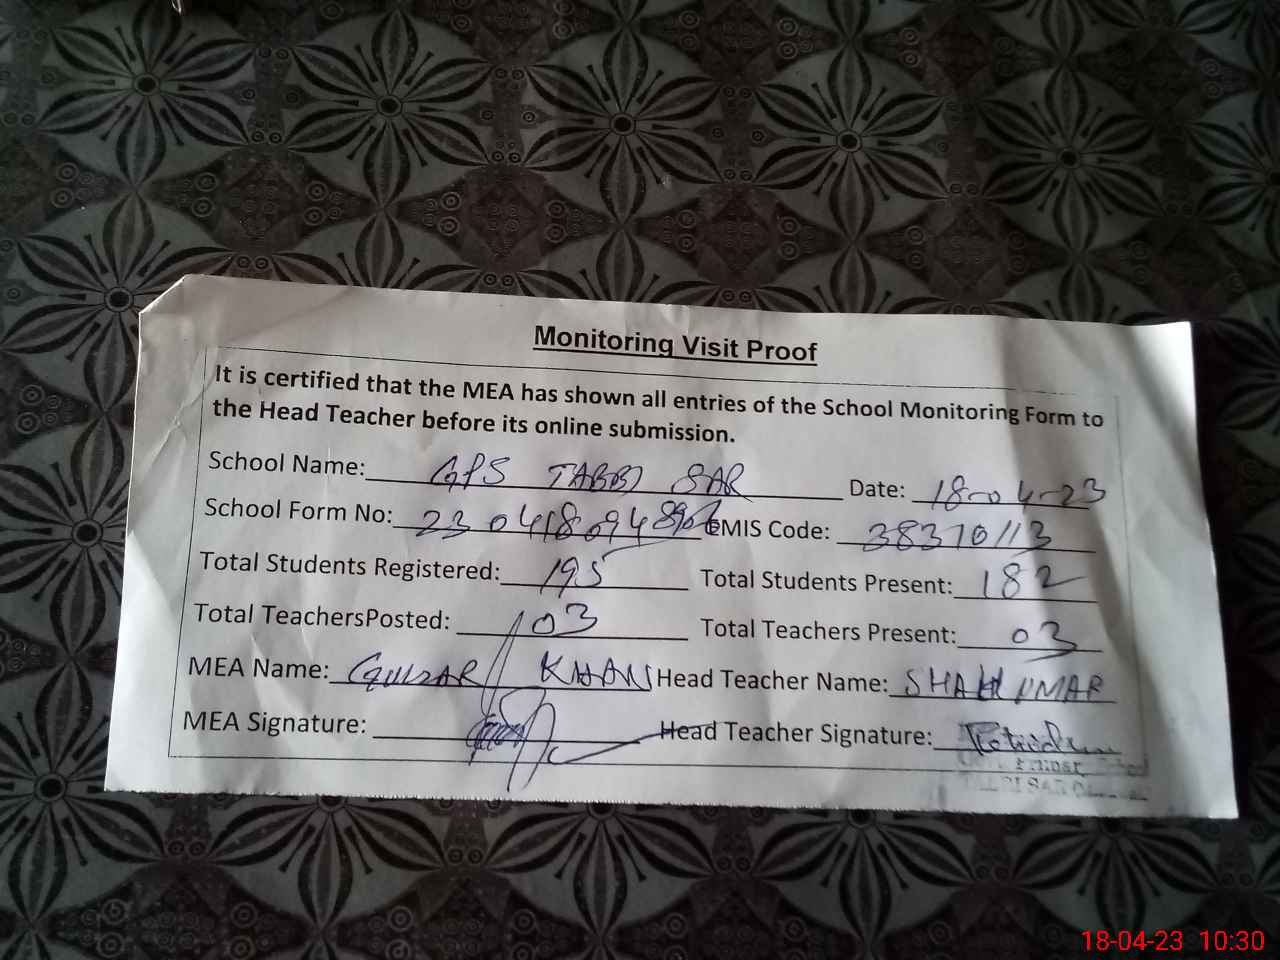 Monitoring Visit Proof
It is certified that the MEA has shown all entries of the School Monitoring Form to
the Head Teacher before its online submission.
School Name: GPS TABBI SAR Date: 18-04-23
School Form No: EMIS Code: 38370113
Total Students Registered: 195 Total Students Present: 182
Total TeachersPosted: 03 Total Teachers Present: 03
MEA Name: GULZAR KHAN Head Teacher Name: SHAH UMAR
MEA Signature: Head Teacher Signature:
18-04-23 10:30